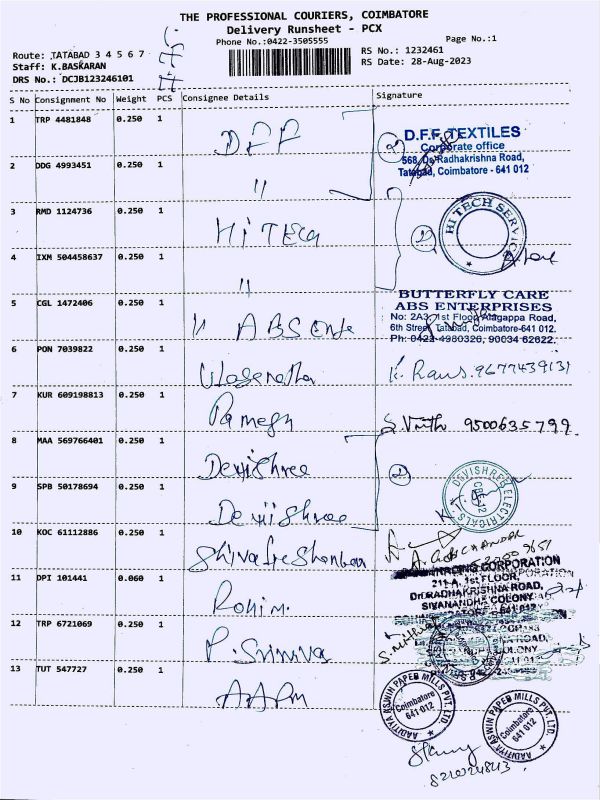 THE PROFESSIONAL COURIERS, COIMBATORE
Delivery Runsheet - PCX
Phone No.:0422-3505555
Page No.:1
Route: TATABAD 3 4 5 6 7
Staff: K.BASKARAN
DRS No.: DCJB123246101
RS No.: 1232461
RS Date: 28-Aug-2023
S No Consignment No Weight PCS Consignee Details Signature
1 TRP 4481848 0.250 1 DFF
D.F.F. TEXTILES
Corporate office
568, Dr. Radhakrishna Road,
Tatabad, Coimbatore - 641 012
2 DDG 4993451 0.250 1 "
3 RMD 1124736 0.250 1 Hi TECH
HI TECH SERVICE
4 IXM 504458637 0.250 1 "
5 CGL 1472406 0.250 1 " ABS
BUTTERFLY CARE
ABS ENTERPRISES
No: 2A3, 1st Floor, Alagappa Road,
6th Street, Tatabad, Coimbatore-641 012.
Ph: 0422-4980326, 90034 62622.
6 PON 7039822 0.250 1
9677439131
7 KUR 609198813 0.250 1 Ramesh
9500635799
8 MAA 569766401 0.250 1 Devishree
DEVISHREE ELECTRICALS
9 SPB 50178694 0.250 1 Devishree
10 KOC 61112886 0.250 1
11 DPI 101441 0.060 1 Rohim
CORPORATION
211-A, 1st FLOOR,
Dr.RADHAKRISHNA ROAD,
SIVANANDHA COLONY
12 TRP 6721069 0.250 1 P. Sriniva
13 TUT 547727 0.250 1 AAPM
AADITIYA ASWIN PAPER MILLS PVT. LTD.
Coimbatore
641 012
AADITIYA ASWIN PAPER MILLS PVT. LTD.
Coimbatore
641 012